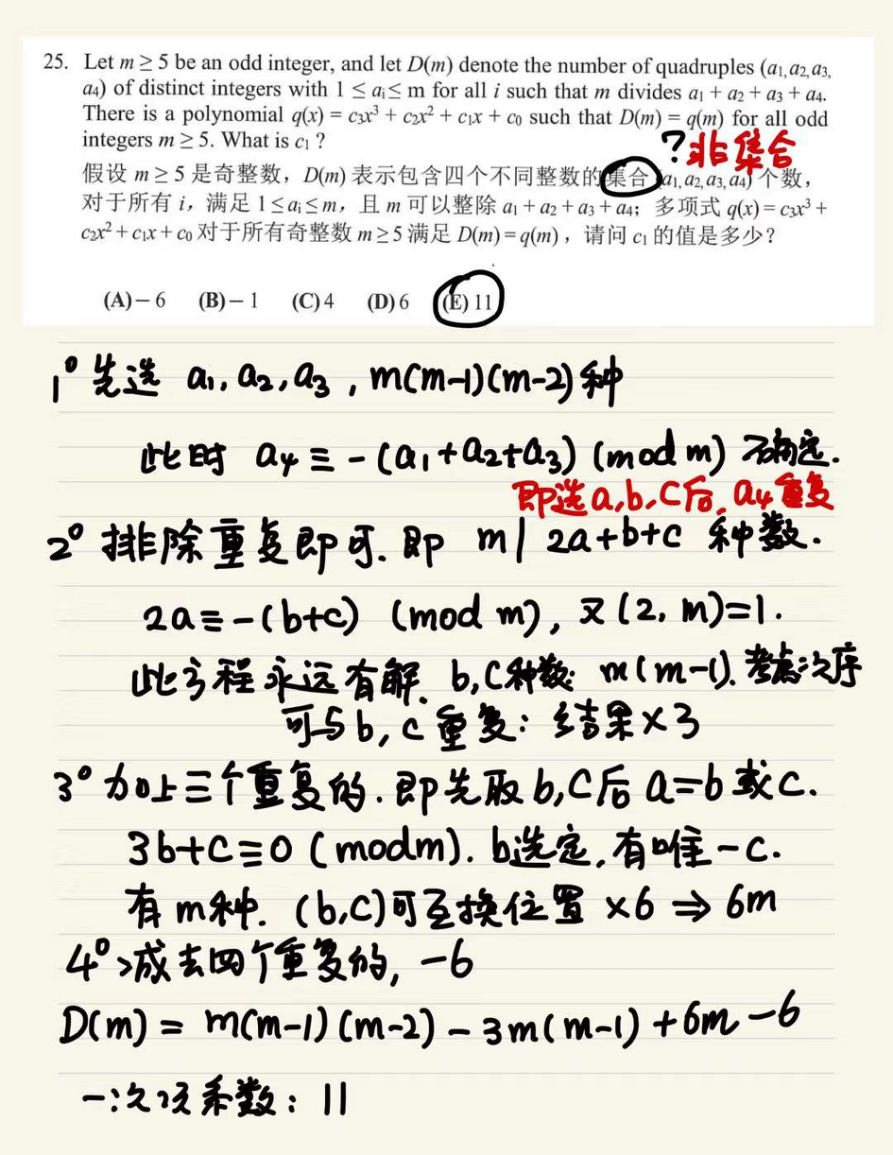 25. Let m ≥ 5 be an odd integer, and let D(m) denote the number of quadruples (a₁, a₂, a₃,
a₄) of distinct integers with 1 ≤ aᵢ ≤ m for all i such that m divides a₁ + a₂ + a₃ + a₄.
There is a polynomial q(x) = c₃x³ + c₂x² + c₁x + c₀ such that D(m) = q(m) for all odd
integers m ≥ 5. What is c₁ ?
?非集合
假设 m ≥ 5 是奇整数，D(m) 表示包含四个不同整数的集合 (a₁, a₂, a₃, a₄) 个数，
对于所有 i，满足 1 ≤ aᵢ ≤ m，且 m 可以整除 a₁ + a₂ + a₃ + a₄；多项式 q(x) = c₃x³ +
c₂x² + c₁x + c₀ 对于所有奇整数 m ≥ 5 满足 D(m) = q(m)，请问 c₁ 的值是多少？
(A) – 6 (B) – 1 (C) 4 (D) 6 (E) 11
1° 先选 a₁, a₂, a₃ , m(m-1)(m-2)种
此时 a₄ ≡ -(a₁+a₂+a₃) (mod m) 确定.
即选a,b,c后, a₄重复
2° 排除重复即可. 即 m | 2a+b+c 种数.
2a ≡ -(b+c) (mod m), 又(2, m)=1.
此方程永远有解. b,c种数: m(m-1). 考虑次序
可与b, c重复: 结果×3
3° 加上三个重复的. 即先取b,c后 a=b或c.
3b+c≡0 (mod m). b选定, 有唯一c.
有m种. (b,c)可互换位置 ×6 ⇒ 6m
4° 减去四个重复的, -6
D(m) = m(m-1)(m-2) - 3m(m-1) + 6m - 6
一次项系数: 11